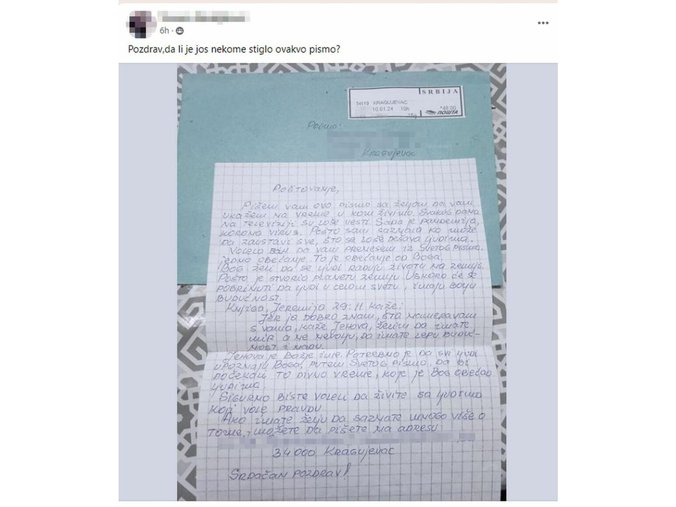 6h
Pozdrav,da li je jos nekome stiglo ovakvo pismo?
SRBIJA
34119 KRAGUJEVAC
10.01.24 10h
POŠTA
Kragujevac
Poštovanje,
Pišem vam ovo pismo sa željom da vam
ukažem na vreme u kom živimo. Svakog dana
na televiziji su loše vesti. Sada je pandemija,
korona virus. Pošto sam saznala ko može
da zaustavi sve, što se loše dešava ljudima.
Volela bih da vam prenesem iz Svetog pisma,
jedno obećanje. To je obećanje od Boga.
Bog želi da se ljudi raduju životu na zemlji.
Pošto je stvorio planetu zemlju uskoro će se
pobrinuti da ljudi u celom svetu, imaju bolju
budućnost.
Knjiga, Jeremija 29:11. kaže:
"Jer ja dobro znam, šta nameravam
s vama, kaže Jehova, želim da imate
mir a ne nevolju, da imate lepu buduć-
nost i nadu.
Jehova je Božje ime. Potrebno je da svi ljudi
upoznaju Boga, putem Svetog pisma, da bi
dočekali to divno vreme, koje je Bog obećao
ljudima.
Sigurno biste voleli da živite sa ljudima
koji vole pravdu.
Ako imate želju da saznate mnogo više o
tome, možete da pišete na adresu:
34000 Kragujevac
Srdačan pozdrav!